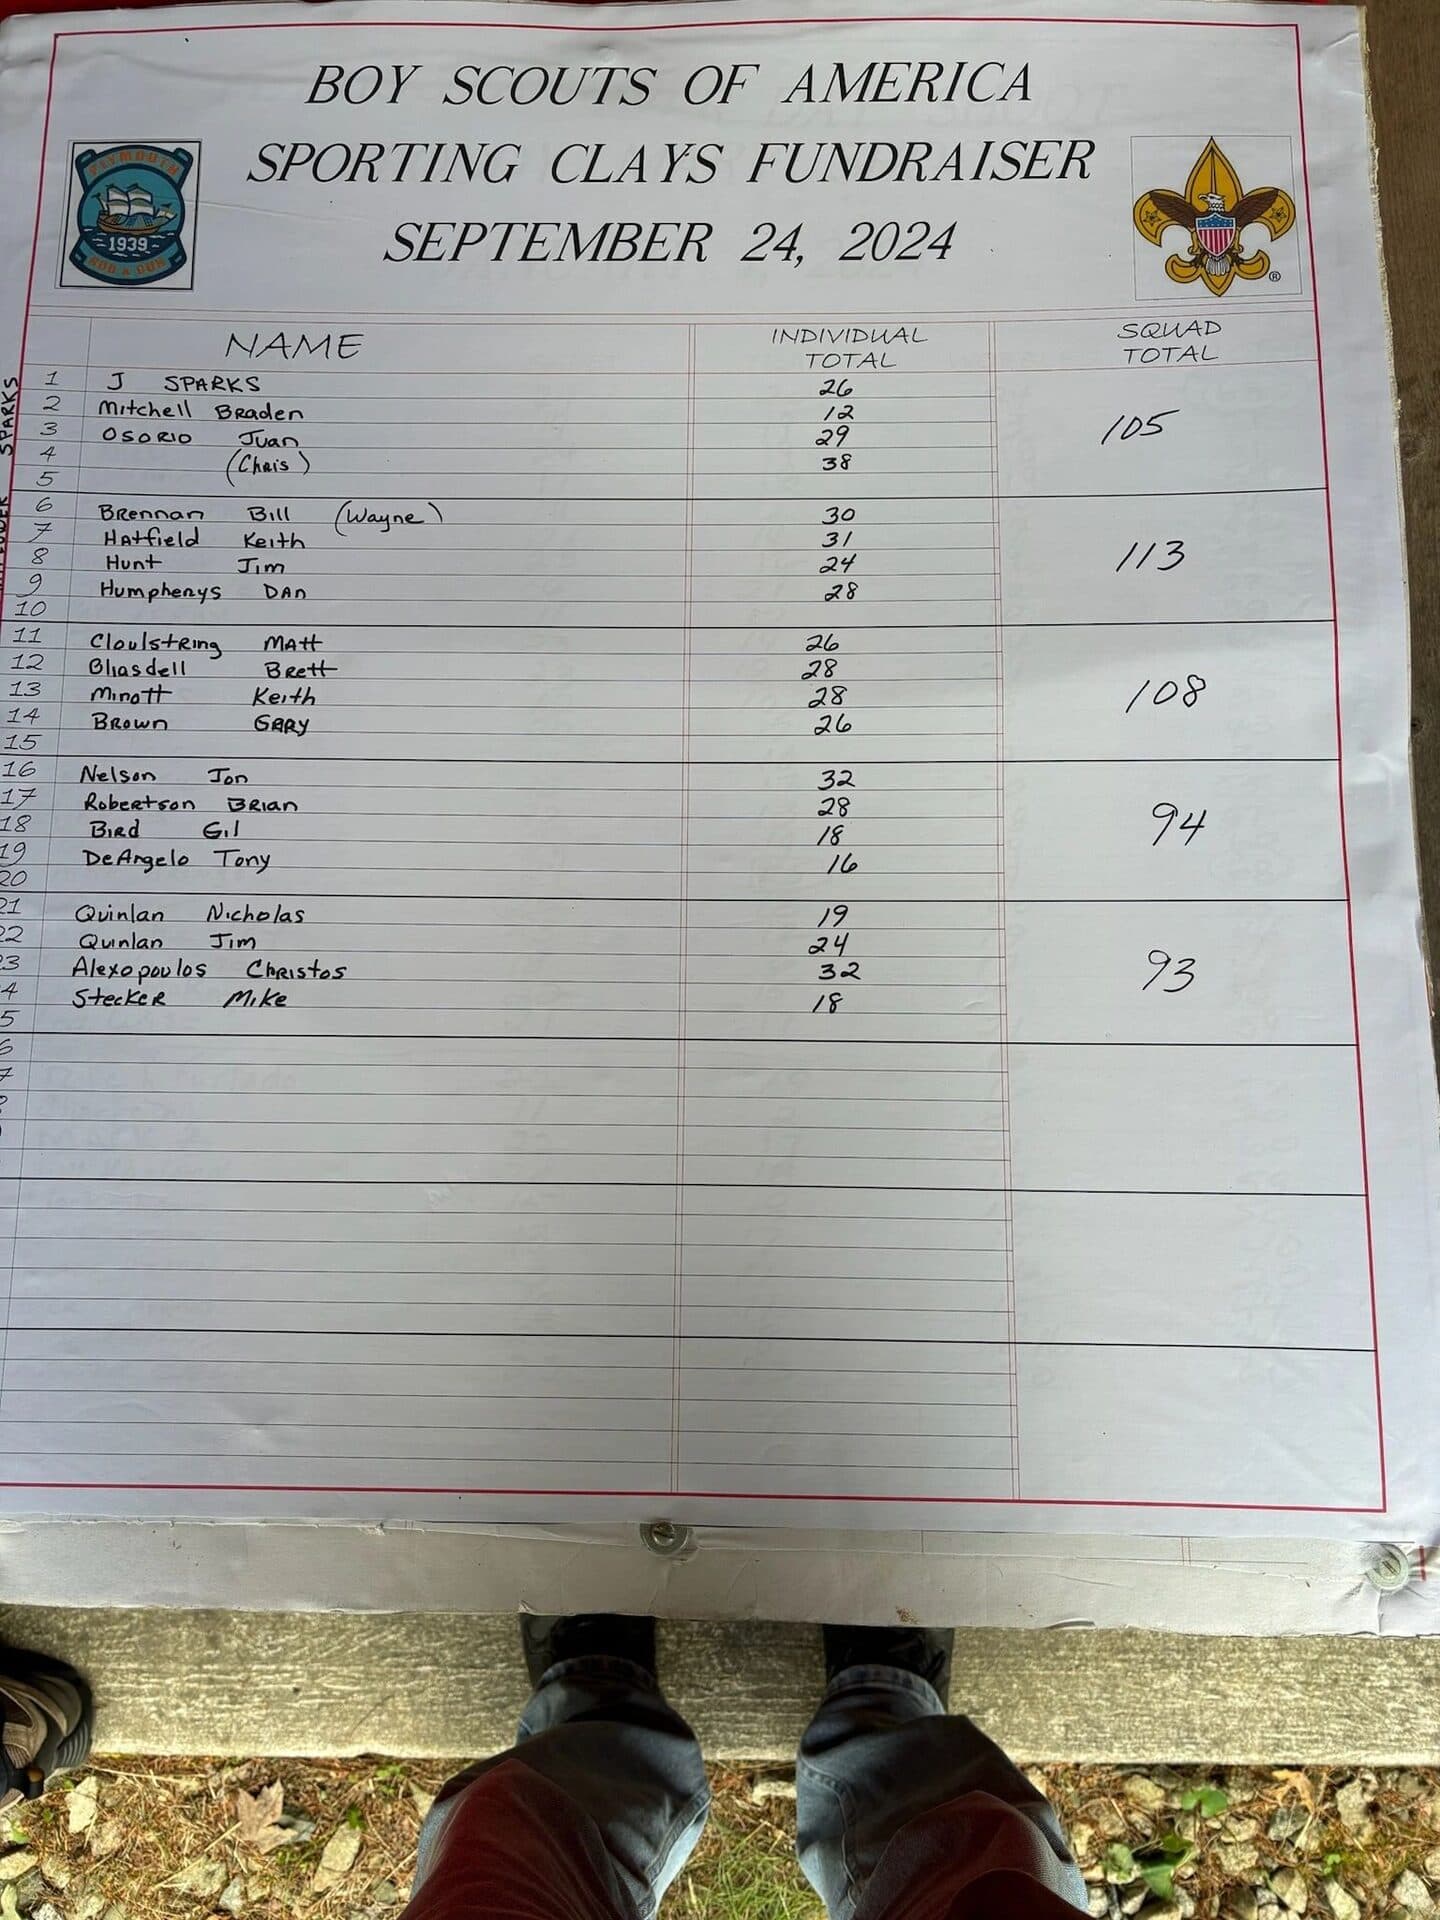 BOY SCOUTS OF AMERICA
SPORTING CLAYS FUNDRAISER
SEPTEMBER 24, 2024
PLYMOUTH
1939
ROD & GUN
®
NAME INDIVIDUAL TOTAL SQUAD TOTAL
SPARKS
1 J SPARKS 26
2 Mitchell Braden 12
3 OSORIO Juan 29 105
4 (Chris) 38
5
6 Brennan Bill (Wayne) 30
7 Hatfield Keith 31
8 Hunt Jim 24 113
9 Humpherys DAn 28
10
11 Cloulstring MAtt 26
12 Bliasdell Brett 28
13 Minott Keith 28 108
14 Brown GARY 26
15
16 Nelson Jon 32
17 Robertson BRIAn 28
18 Bird Gil 18 94
19 DeAngelo Tony 16
20
21 Quinlan Nicholas 19
22 Quinlan Jim 24
23 Alexopoulos Christos 32 93
4 Stecker Mike 18
5
6
7